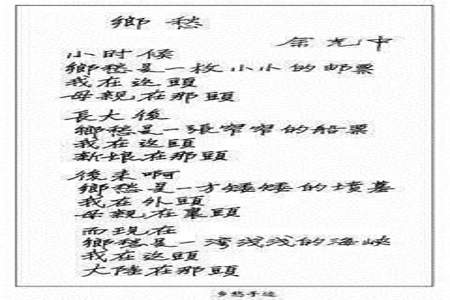 鄉愁
余光中
小时候
鄉愁是一枚小小的邮票
我在這頭
母親在那頭
長大後
鄉愁是一張窄窄的船票
我在這頭
新娘在那頭
後来啊
鄉愁是一方矮矮的墳墓
我在外頭
母親在裏頭
而現在
鄉愁是一湾浅浅的海峡
我在這頭
大陸在那頭
乡愁手迹